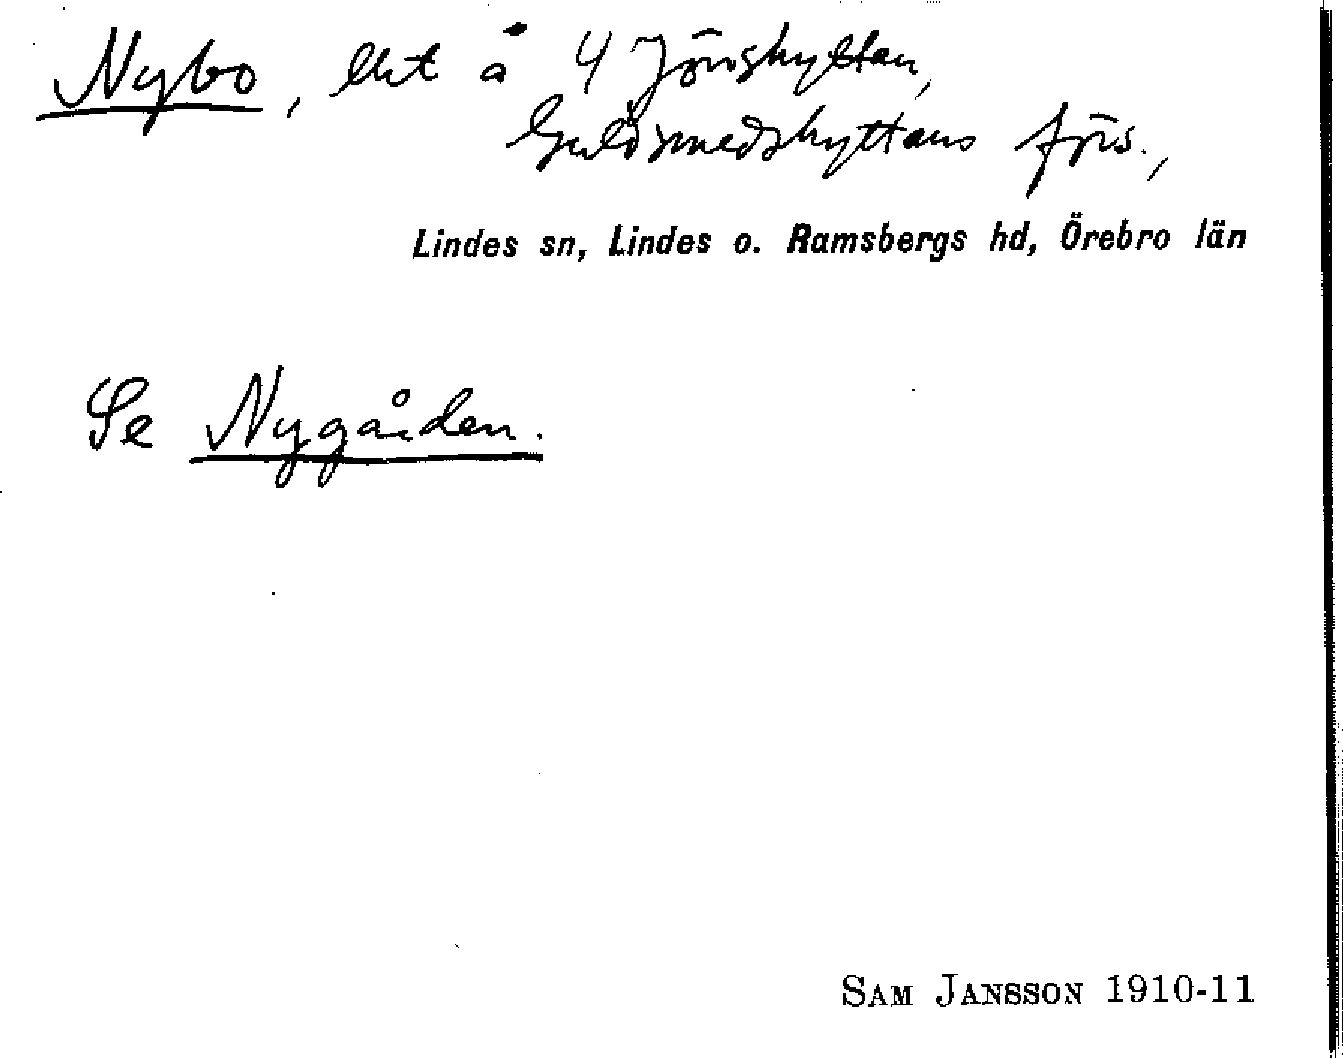 Nybo, lht å 4 Jönshyttan,
Guldsmedshyttans förs.,
Lindes sn, Lindes o. Ramsbergs hd, Örebro län
Se Nygården.
SAM JANSSON 1910-11